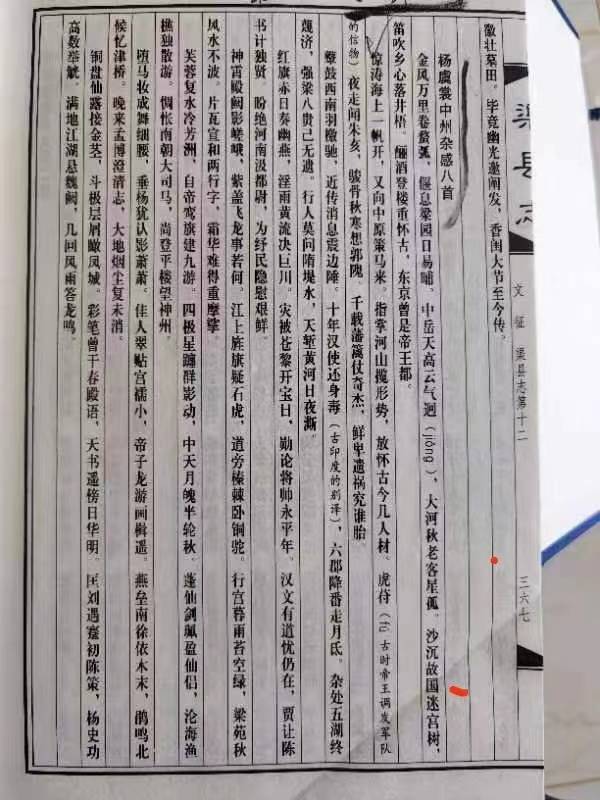 渠县志
文征 渠县志第十二
三六七
徽壮墓田。毕竟幽光邀阐发，香闺大节至今传。
杨虞裳中州杂感八首
金风万里卷蝥弧，偃息梁园日易晡。中岳天高云气迥（jiǒng），大河秋老客星孤。沙沉故国迷宫树，
笛吹乡心落井梧。俪酒登楼重怀古，东京曾是帝王都。
惊涛海上一帆开，又向中原策马来。指掌河山揽形势，放怀古今几人材。虎符（fú 古时帝王调发军队
的信物）夜走闻朱亥，骏骨秋寒想郭隗。千载藩篱仗奇杰，鲜卑遗祸究谁胎。
鼙鼓西南羽檄驰，近传消息震边陲。十年汉使还身毒（古印度的别译），六郡降番走月氐。杂处五湖终
蔑济，强梁八贵已无遗。行人莫问隋堤水，天堑黄河日夜澌。
红旗赤日奏幽燕，淫雨黄流决巨川。灾被苍黎开宝日，勋论将帅永平年。汉文有道忧仍在，贾让陈
书计独贤。盼绝河南汲都尉，为纾民隐慰艰鲜。
神霄殿阙影嵯峨，紫盖飞龙事若何。江上旌旗疑石虎，道旁榛棘卧铜驼。行宫暮雨苔空绿，梁苑秋
风水不波。片瓦宣和两行字，霜华难得重摩挲。
芙蓉复水冷芳洲，自帝鸾旗建九游。四极星躔群影动，中天月魄半轮秋。蓬仙剑珮盈仙侣，沧海渔
樵独散游。惆怅南朝大司马，尚登平楼望神州。
堕马妆成舞细腰，垂杨犹认影萧萧。佳人翠贴宫襦小，帝子龙游画楫遥。燕垒南徐依木末，鹃鸣北
候忆津桥。晚来孟博澄清志，大地烟尘复未消。
铜盘仙露接金茎，斗极层屑瞰凤城。彩笔曾干春殿语，天书遥傍日华明。匡刘遇蹇初陈策，杨史功
高数举觥。满地江湖总魏阙，几回风雨答龙鸣。